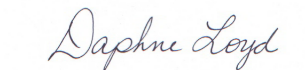 Daphne Loyd